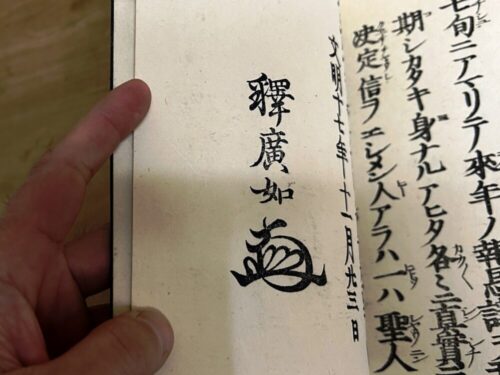 七旬ニアマリテ來年ノ報恩講
期シカタキ身ナルアヒタ各ミニ眞實ニ
决定信ヲエシメン人アラハ一ハ聖人
文明十七年十一月廿三日
釋廣如